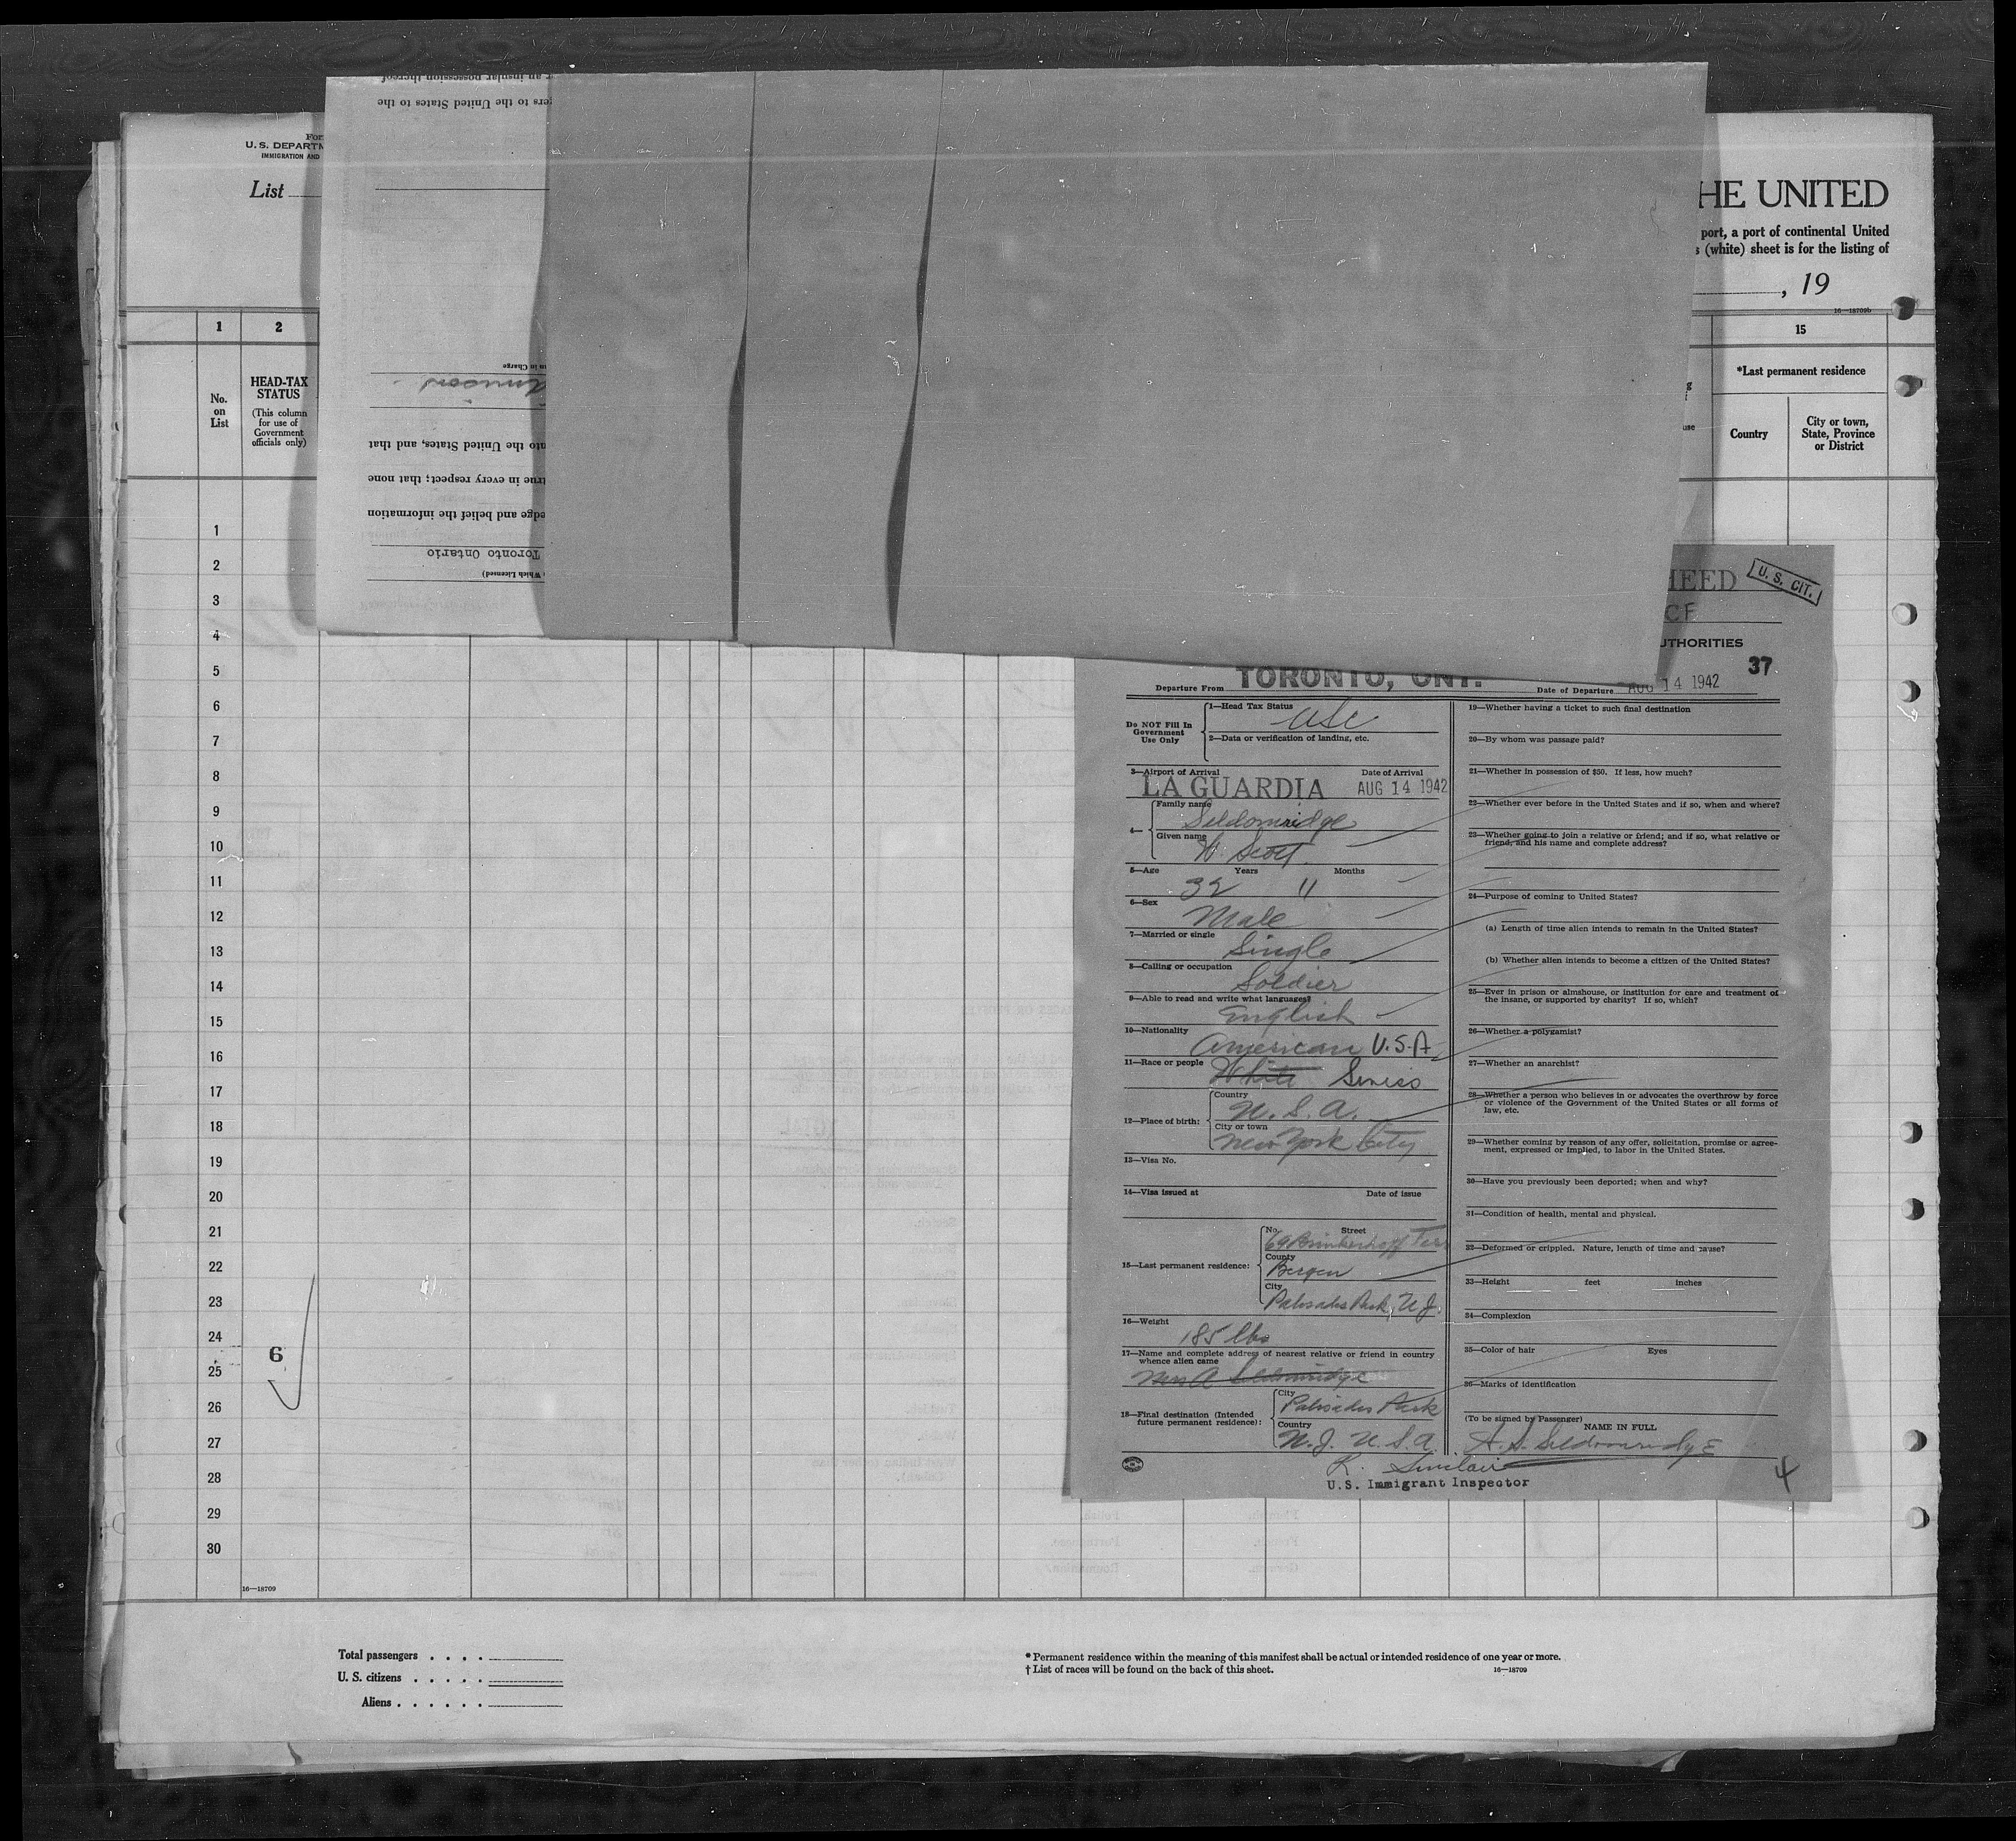 For
U. S. DEPARTM
IMMIGRATION AND
List
or an insular possession thereof
gers to the United States to the
in Charge
nto the United States, and that
true in every respect; that none
edge and belief the information
Toronto Ontario
Which Licensed)
HE UNITED
port, a port of continental United
s (white) sheet is for the listing of
, 19
16—18709b
1 2 15
No. on List
HEAD-TAX STATUS
(This column for use of Government officials only)
*Last permanent residence
Country
City or town, State, Province or District
1
2
3
4
5
6
7
8
9
10
11
12
13
14
15
16
17
18
19
20
21
22
23
24
25
26
27
28
29
30
6
16—18709
HEED
U. S. CIT.
CE
UTHORITIES
37
Departure From TORONTO, ONT.
Date of Departure AUG 14 1942
Do NOT Fill In Government Use Only
1—Head Tax Status
USC
2—Data or verification of landing, etc.
3—Airport of Arrival Date of Arrival
LA GUARDIA AUG 14 1942
4—
Family name
Seldomridge
Given name
W. Scott
5—Age Years Months
32 11
6—Sex
Male
7—Married or single
Single
8—Calling or occupation
Soldier
9—Able to read and write what languages?
English
10—Nationality
American U.S.A.
11—Race or people
White Swiss
12—Place of birth:
Country
U. S. A.
City or town
New York City
13—Visa No.
14—Visa issued at Date of issue
15—Last permanent residence:
No. Street
69 Brinkerhoff Terr
County
Bergen
City
Palisades Park, N.J.
16—Weight
185 lbs
17—Name and complete address of nearest relative or friend in country
whence alien came
Mrs A Seldomridge
18—Final destination (Intended
future permanent residence):
City
Palisades Park
Country
N. J. U. S. A.
19—Whether having a ticket to such final destination
20—By whom was passage paid?
21—Whether in possession of $50. If less, how much?
22—Whether ever before in the United States and if so, when and where?
23—Whether going to join a relative or friend; and if so, what relative or
friend, and his name and complete address?
24—Purpose of coming to United States?
(a) Length of time alien intends to remain in the United States?
(b) Whether alien intends to become a citizen of the United States?
25—Ever in prison or almshouse, or institution for care and treatment of
the insane, or supported by charity? If so, which?
26—Whether a polygamist?
27—Whether an anarchist?
28—Whether a person who believes in or advocates the overthrow by force
or violence of the Government of the United States or all forms of
law, etc.
29—Whether coming by reason of any offer, solicitation, promise or agree-
ment, expressed or implied, to labor in the United States.
30—Have you previously been deported; when and why?
31—Condition of health, mental and physical.
32—Deformed or crippled. Nature, length of time and cause?
33—Height feet inches
34—Complexion
35—Color of hair Eyes
36—Marks of identification
(To be signed by Passenger) NAME IN FULL
Seldomridge
K. Sinclair
U.S. Immigrant Inspector
4
Total passengers . . . .
U. S. citizens . . . . .
Aliens . . . . . .
* Permanent residence within the meaning of this manifest shall be actual or intended residence of one year or more.
† List of races will be found on the back of this sheet.
16—18709